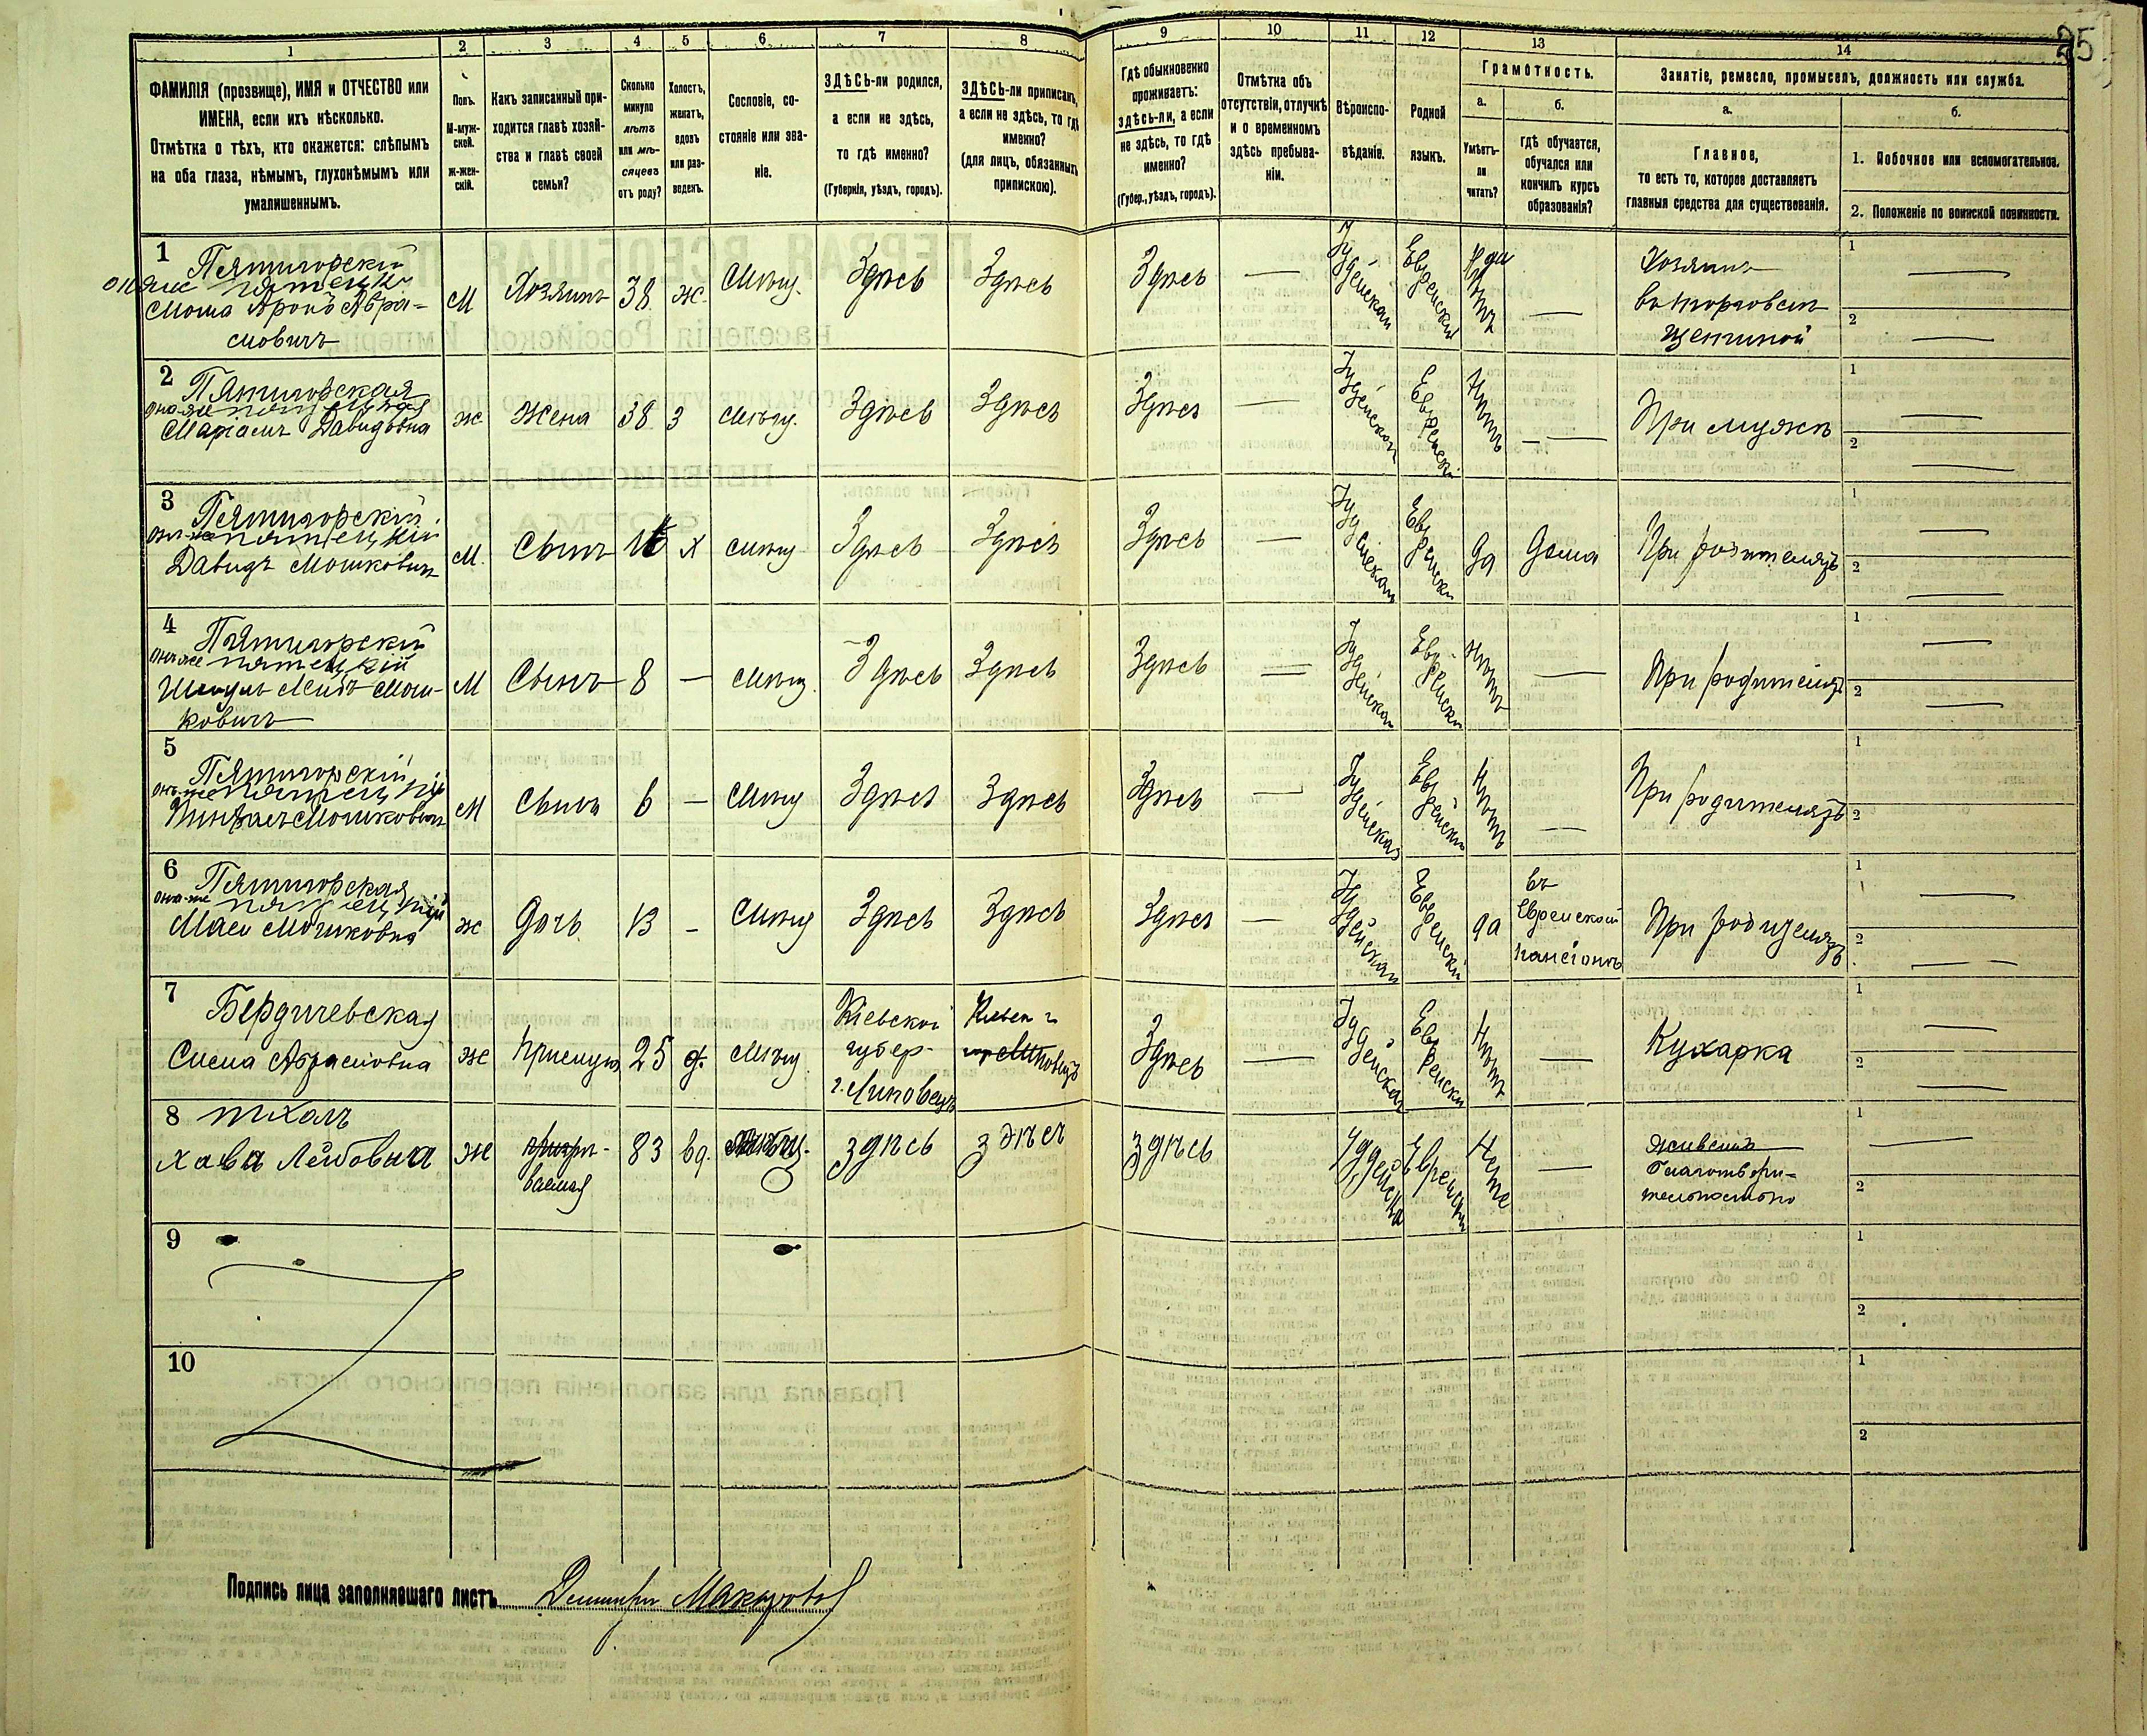 25
1 2 3 4 5 6 7 8 9 10 11 12 13 14
ФАМИЛІЯ (прозвище), ИМЯ и ОТЧЕСТВО или
ИМЕНА, если ихъ нѣсколько.
Отмѣтка о тѣхъ, кто окажется: слѣпымъ
на оба глаза, нѣмымъ, глухонѣмымъ или
умалишеннымъ.
Полъ.
М-муж-
ской.
Ж-жен-
скій.
Какъ записанный при-
ходится главѣ хозяй-
ства и главѣ своей
семьи?
Сколько
минуло
лѣтъ
или мѣ-
сяцевъ
отъ роду?
Холостъ,
женатъ,
вдовъ
или раз-
веденъ.
Сословіе, со-
стояніе или зва-
ніе.
ЗДѢСЬ-ли родился,
а если не здѣсь,
то гдѣ именно?
(Губернія, уѣздъ, городъ).
ЗДѢСЬ-ли приписанъ,
а если не здѣсь, то гдѣ
именно?
(для лицъ, обязанныхъ
припискою).
Гдѣ обыкновенно
проживаетъ:
здѣсь-ли, а если
не здѣсь, то гдѣ
именно?
(Губер., уѣздъ, городъ).
Отмѣтка объ
отсутствіи, отлучкѣ
и о временномъ
здѣсь пребыва-
ніи.
Вѣроиспо-
вѣданіе.
Родной
языкъ.
Грамотность.
а.
Умѣетъ-
ли
читать?
б.
гдѣ обучается,
обучался или
кончилъ курсъ
образованія?
Занятіе, ремесло, промыселъ, должность или служба.
а.
Главное,
то есть то, которое доставляетъ
главныя средства для существованія.
б.
1. Побочное или вспомогательное.
2. Положеніе по воинской повинности.
1
Пятигорскій
онъ же пятецкій
Мошка Аронъ Абра-
мовичъ
М
Хозяинъ
38
ж.
Мѣщ.
Здѣсь
Здѣсь
Здѣсь
—
Іудейская
Еврейскій
—
Хозяинъ
въ торговлѣ
щетиной
1 —
2 —
2
Пятигорская
она же пятецкая
Маріамъ Давидовна
ж
жена
38
З
Мѣщ.
Здѣсь
Здѣсь
Здѣсь
—
Іудейская
Еврейскій
Нѣтъ
—
При мужѣ
1 —
2 —
3
Пятигорскій
онъ же пятецкій
Давидъ Мошковичъ
М.
Сынъ
Х
Мѣщ
Здѣсь
Здѣсь
Здѣсь
—
Іудейская
Еврейскій
да
дома
При родителяхъ
1 —
2 —
4
Пятигорскій
онъ же пятецкій
Шмуль Лейбъ Мош-
ковичъ
М
Сынъ
8
—
Мѣщ.
Здѣсь
Здѣсь
Здѣсь
—
Іудейская
Еврейскій
Нѣтъ
—
При родителяхъ
1 —
2 —
5
Пятигорскій
онъ же пятецкій
Мошковичъ
М
Сынъ
6
—
Мѣщ
Здѣсь
Здѣсь
Здѣсь
—
Іудейская
Еврейскій
Нѣтъ
—
При родителяхъ
1
2
6
Пятигорская
она же пятецкій
Мошковна
ж
дочь
13
-
Мѣщ
Здѣсь
Здѣсь
Здѣсь
—
Іудейская
Еврейскій
да
въ
Еврейской
пансіонѣ
При родителяхъ
1 —
2 —
7
Бердичевская
Сима Абрамовна
ж
прислуга
25
д.
Мѣщ.
Кіевской
губер-
г. Липовецъ
Кіевск г
Липовецъ
Здѣсь
—
Іудейская
Еврейскій
Нѣтъ
—
Кухарка
1 —
2 —
8
Хава Лейбовна
ж
призрѣ-
ваемая
83
вд.
здѣсь
здѣсь
здѣсь
Іудейска
Еврейскій
Нетъ
—
живетъ
благотвори-
тельностью
1 —
2
9
1
2
10
1
2
Подпись лица заполнявшаго листъ Дмитрій Макаровъ